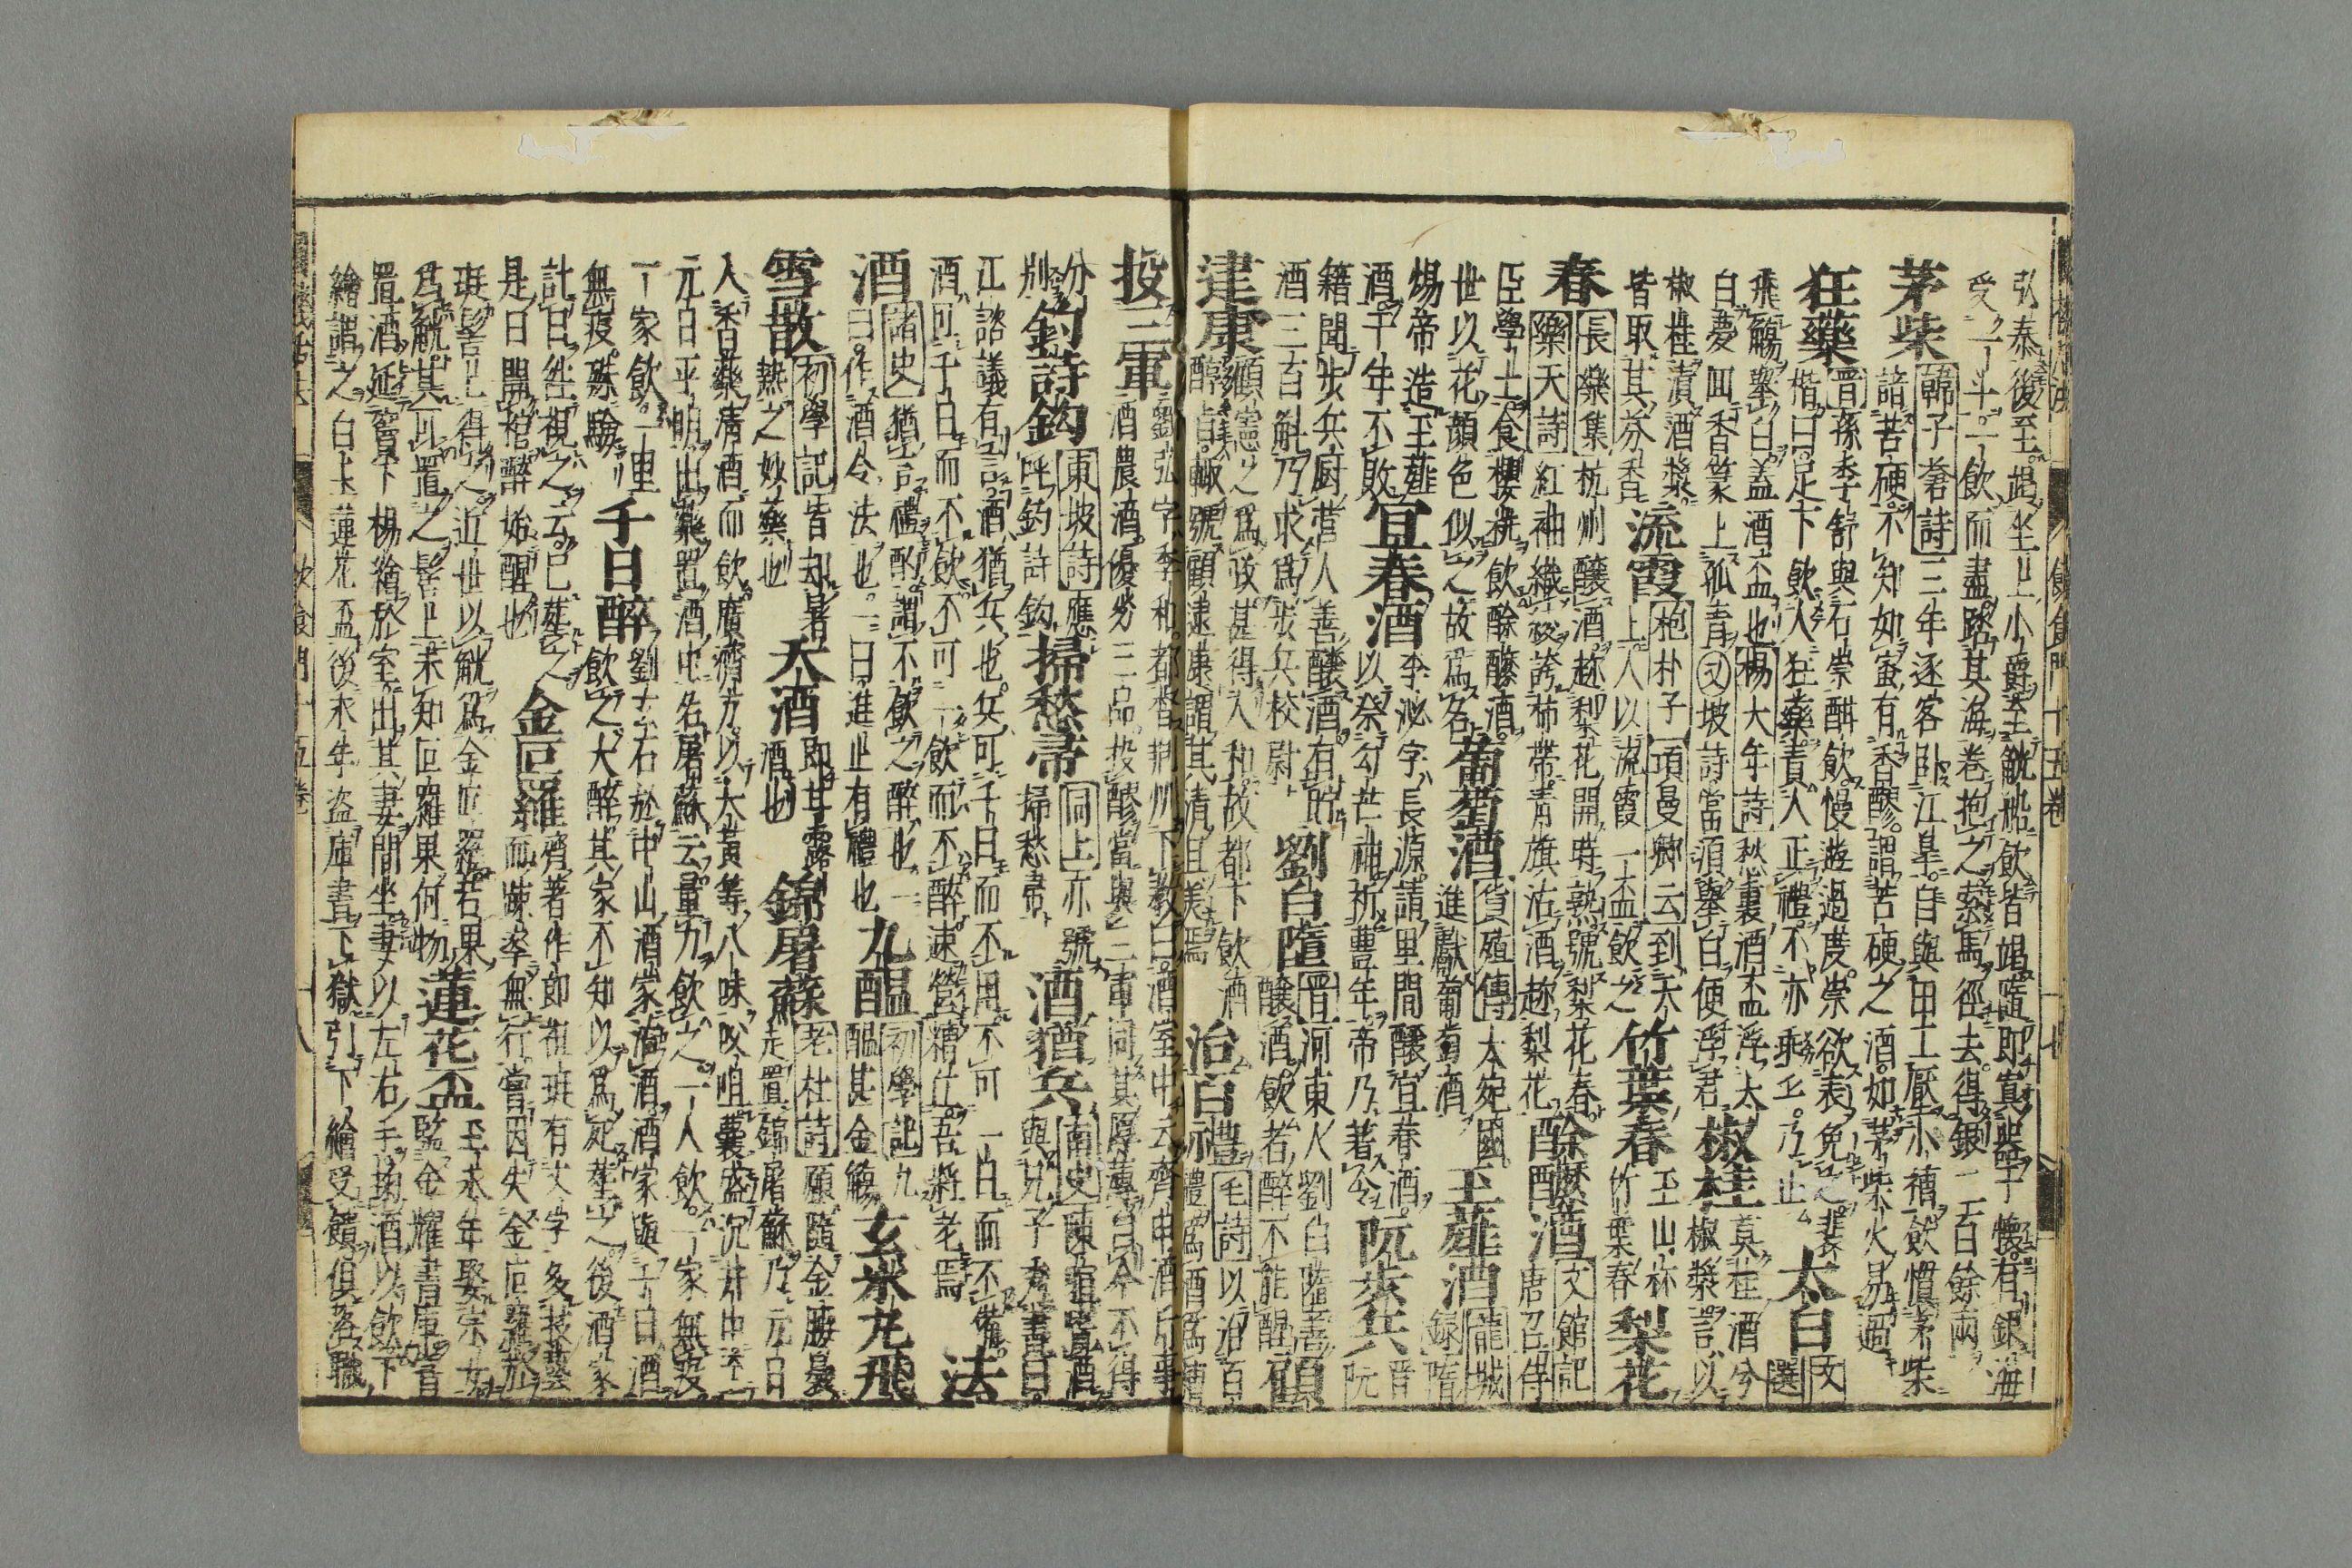 弘泰後至踞坐上小爵至觥船飲皆竭隨即寘器于懷有銀海
受一斗一飲而盡踏其海卷抱之索馬徑去得銀二百餘兩
茅柴
韓子蒼詩三年逐客臥江皋自與田工厭小槽飲慣茅柴
諳苦硬不知如蜜有香醪謂苦硬之酒如茅柴火易過
狂藥
晋孫季舒與石崇酣飲慢遊過度崇欲表免之裴
楷曰足下飲人狂藥責人正禮不亦乖乎乃止
太白
文選
飛觴舉白盖酒盃也楊大年詩愁裏酒盃浮太
白夢回香篆上孤青又坡詩當須舉白便浮君
椒桂
真桂酒兮
椒漿言以
椒桂漬酒漿
皆取其芬香
流霞
抱朴子項曼卿云到天
上人以流霞一盃飲之
竹葉春
玉山杯
竹葉春
梨花
春
長慶集杭州釀酒趂梨花開時熟號梨花春
樂天詩紅袖織綾誇柿帶青旗沽酒趂梨花
酴醾酒
文館記
唐召侍
臣學士食櫻桃飲酴醾酒
世以花顏色似之故爲名
葡萄酒
貨殖傳大宛國
進獻葡萄酒
玉薤酒
龍城
録隋
煬帝造玉薤
酒千年不敗
宜春酒
李泌字長源請里閭釀宜春酒
以祭勾芒神祈豊年帝乃著令
阮歩兵
晋
阮
籍聞歩兵厨營人善釀酒有貯
酒三百斛乃求爲歩兵校尉
劉白隨
晋河東人劉白隨善
釀酒飲者醉不能醒
顧
建康
顧憲之爲政甚得人和故都下飲酒
醇旨輙號顧建康謂其清且美焉
治百礼
毛詩以洽百
禮爲酒爲醴
投三軍
劉弘字季和都督荊州下教曰酒室中云齊中酒厅事
酒農酒優劣三品投醪當與三軍同其厚薄自今不得
分
別
釣詩鈎
東坡詩應
呼釣詩鈎
掃愁帚
同上亦號
掃愁帚
酒猶兵
南史陳暄嗜酒
與兄子秀書曰
江諮議有言酒猶兵也兵可千日而不用不可一日而不備
酒可千日而不飲不可一飲而不醉速營糟丘吾將老焉
法
酒
諸史猶言禮酌謂不飲之醉也一
曰作酒令法也一曰進止有禮也
九醞
初學記九
醞其金觴
玄氷尤飛
雪散
初學記皆却暑
熱之妙藥也
天酒
即甘露
酒也
錦屠蘇
老杜詩願隨金騕褭
走置錦屠蘇乃元日
入香藥漬酒而飲廣濟方以大黃等八味㕮咀囊盛沉井中至
元日平明出藥置酒中名屠蘇云量力飲之一人飲一家無疫
一家飲一里
無疫殊驗
千日醉
劉玄石於中山酒家沽酒酒家與千日酒
飲之大醉其家不知以爲死葬之後酒家
計日往視之云已葬之
是日開棺醉始醒也
金叵羅
齊著作郎祖珽有文字多技藝
而踈率無行嘗因失金叵羅於
珽髻上得之近世以觥爲金叵羅若果
爲觥其可置之髻上未知叵羅果何物
蓮花盃
王永年娶宗女
監金耀書庫嘗
置酒延竇卞楊繪於室出其妻間坐妻以左右手掬酒以飲卞
繪謂之白玉蓮花盃後永年盗庫書下獄引卞繪受饋俱落職
飲食門十五卷